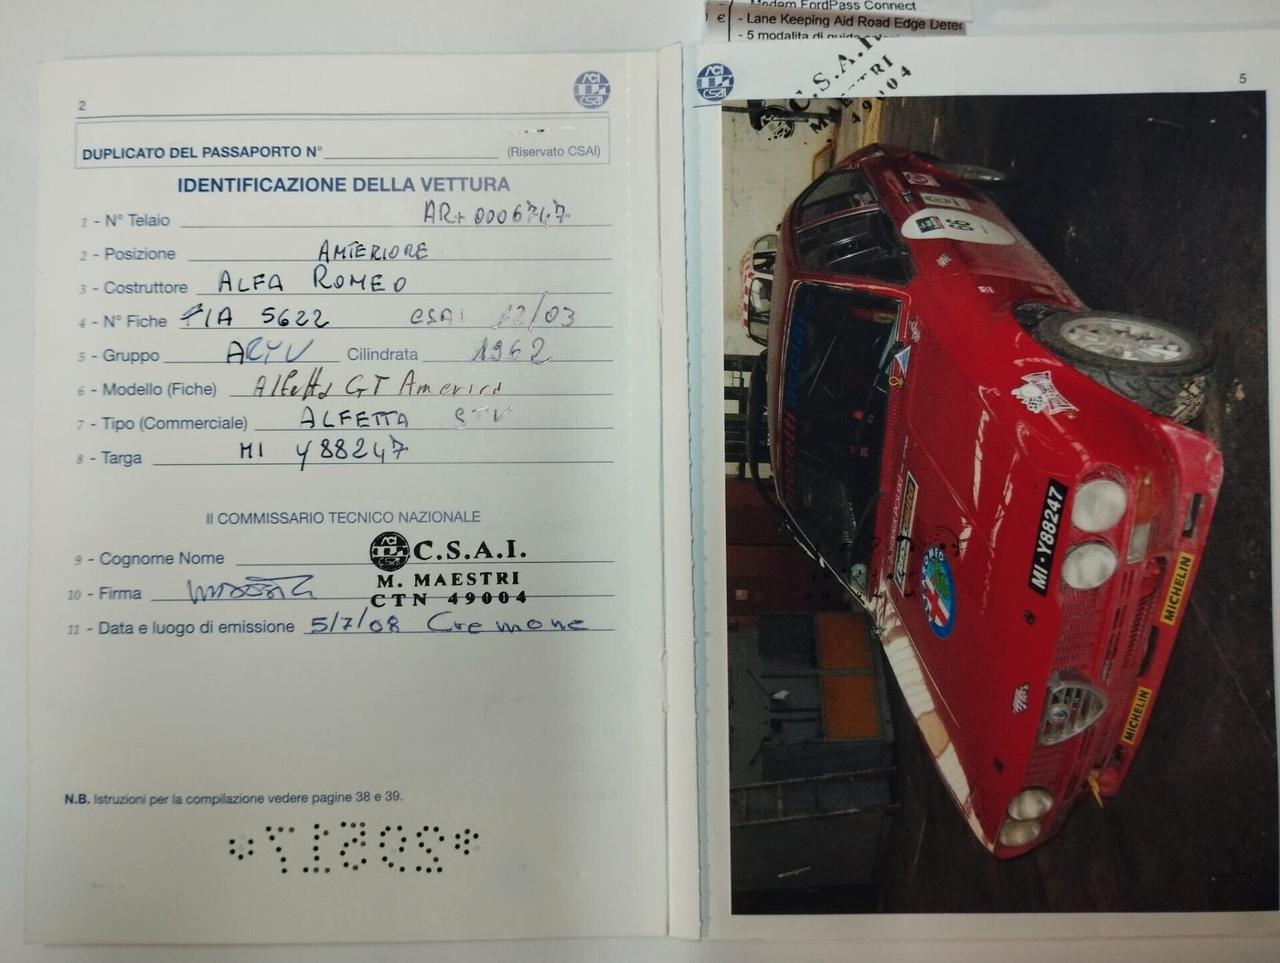 - Modem FordPass Connect
€ - Lane Keeping Aid Road Edge Detec
- 5 modalita di guida
2
ACI CSAI
DUPLICATO DEL PASSAPORTO N° (Riservato CSAI)
IDENTIFICAZIONE DELLA VETTURA
1 - N° Telaio AR+ 0006747
2 - Posizione ANTERIORE
3 - Costruttore ALFA ROMEO
4 - N° Fiche FIA 5622 CSAI 12/03
5 - Gruppo Cilindrata 1962
6 - Modello (Fiche) Alfetta GT America
7 - Tipo (Commerciale) ALFETTA GTV
8 - Targa MI Y88247
Il COMMISSARIO TECNICO NAZIONALE
9 - Cognome Nome
10 - Firma
ACI CSAI C.S.A.I.
M. MAESTRI
CTN 49004
11 - Data e luogo di emissione 5/7/08 Cremone
N.B. Istruzioni per la compilazione vedere pagine 38 e 39.
ACI CSAI
5
C.S.A.I.
MAESTRI
49004
66
MI·Y88247
MICHELIN
MICHELIN
ROMEO